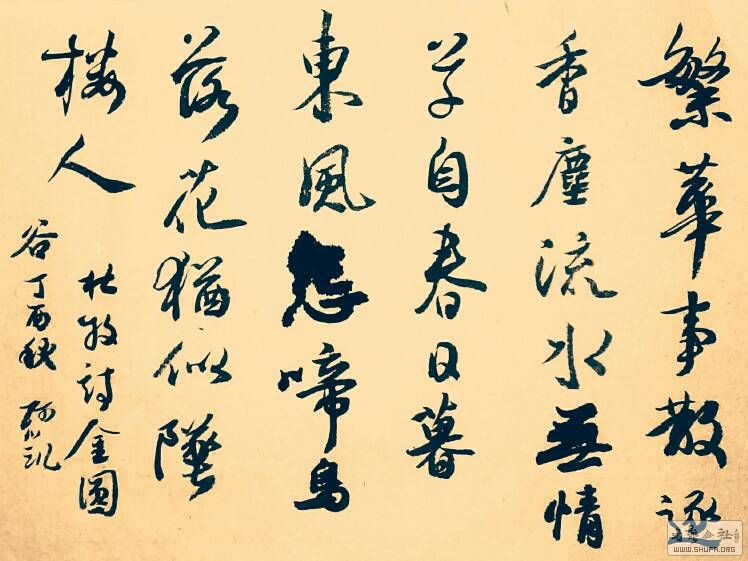 繁華事散逐
香塵流水無情
草自春日暮
東風怨啼鳥
落花猶似墜
楼人
杜牧詩金園
谷丁酉秋
公社
WWW.SHUPA.ORG